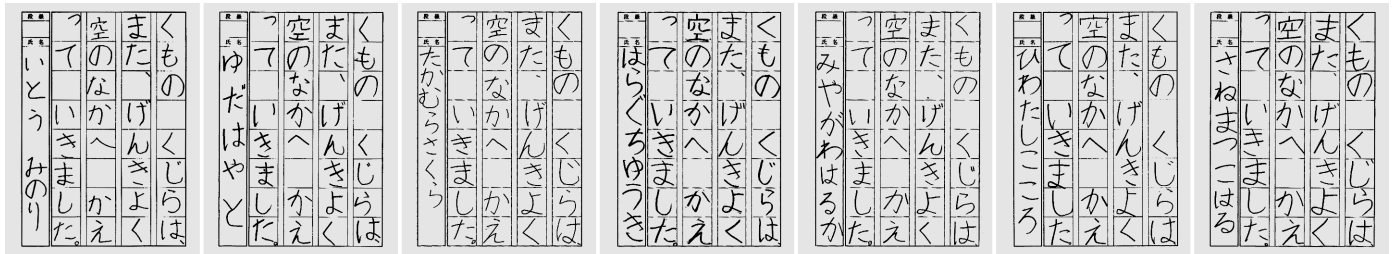 くもの くじらは、
また、げんきよく
空のなかへ かえ
って いきました。
段級
氏名
いとう みのり
くもの くじらは、
また、げんきよく
空のなかへ かえ
って いきました。
段級
氏名
ゆだはやと
くもの くじらは、
また、げんきよく
空のなかへ かえ
って いきました。
段級
氏名
たかむらさくら
くもの くじらは、
また、げんきよく
空のなかへ かえ
って いきました。
段級
氏名
はらぐちゆうき
くもの くじらは、
また、げんきよく
空のなかへ かえ
って いきました。
段級
氏名
みやがわはるか
くもの くじらは
また、げんきよく
空のなかへ かえ
って いきました
段級
氏名
ひわたしこころ
くもの くじらは、
また、げんきよく
空のなかへ かえ
って いきました。
段級
氏名
さねまつこはる